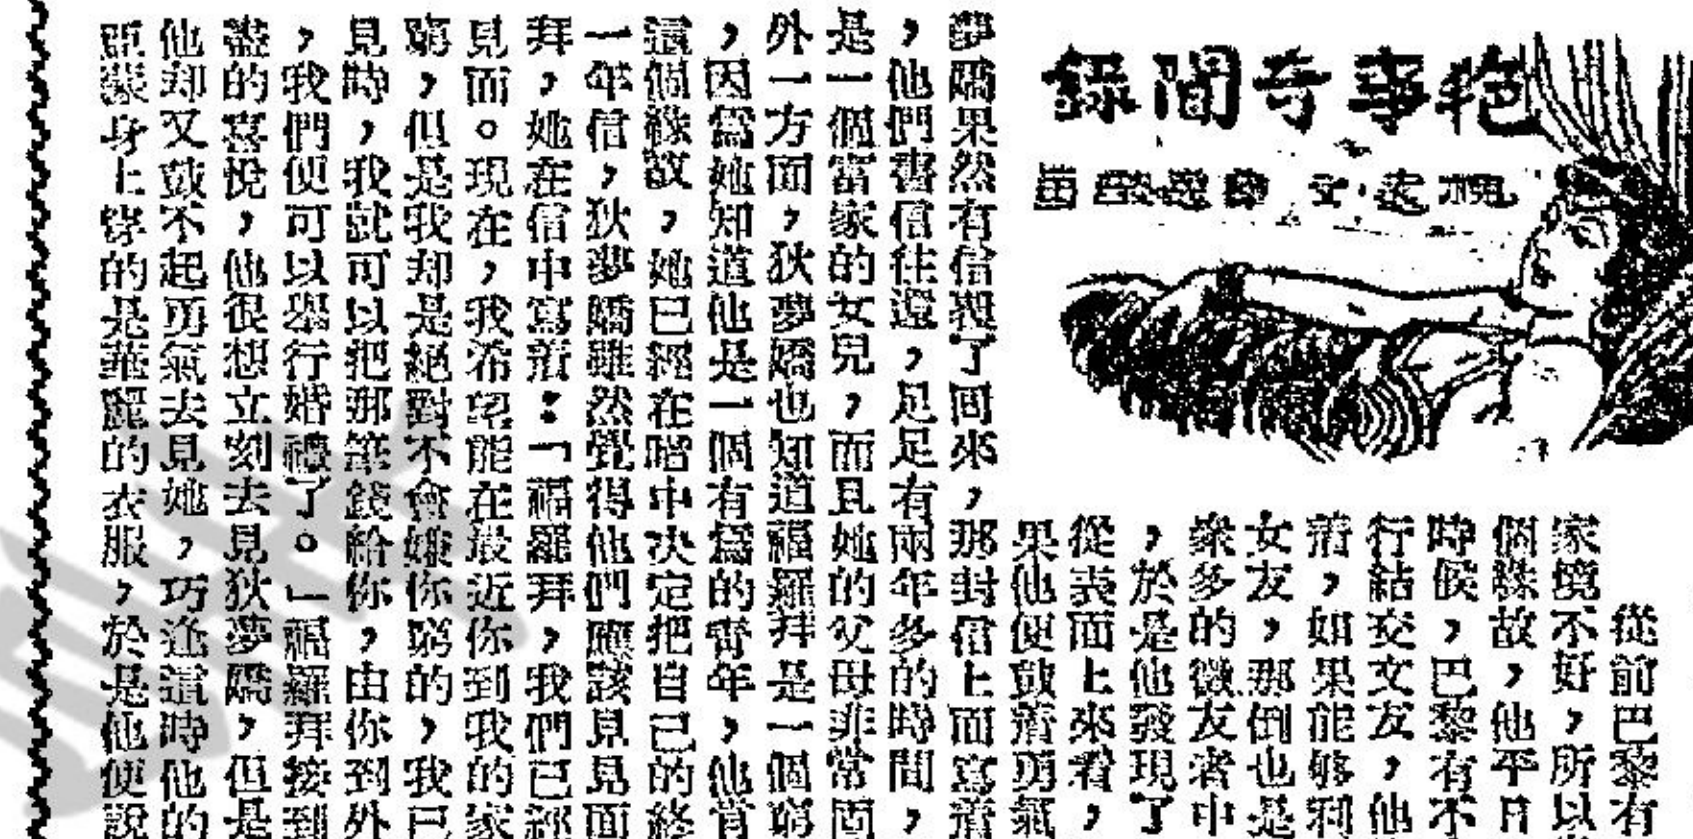 艳事奇聞錄
從前巴黎有
家境不好，所以
個緣故，他平日
時候，巴黎有不
行結交文友，他
着，如果能够利
女友，那倒也是
衆多的徵友者中
，於是他發現了
從表面上來看，
果他便鼓着勇氣
夢嬌果然有信覆了回來，那封信上面寫着
，他們書信往還，足足有兩年多的時間，
是一個富家的女兒，而且她的父母非常固
外一方面，狄夢嬌也知道福羅拜是一個窮
，因爲她知道他是一個有爲的青年，他肯
這個緣故，她已經在暗中决定把自己的終
一年信，狄夢嬌雖然覺得他們應該見見面
拜，她在信中寫着：「福羅拜，我們已經
見面。現在，我希望能在最近你到我的家
窮，但是我却是絕對不會嫌你窮的，我已
見時，我就可以把那筆錢給你，由你到外
，我們便可以舉行婚禮了。」福羅拜接到
盡的喜悅，他很想立刻去見狄夢嬌，但是
他却又鼓不起勇氣去見她，巧逢這時他的
身上穿的是華麗的衣服，於是他便說